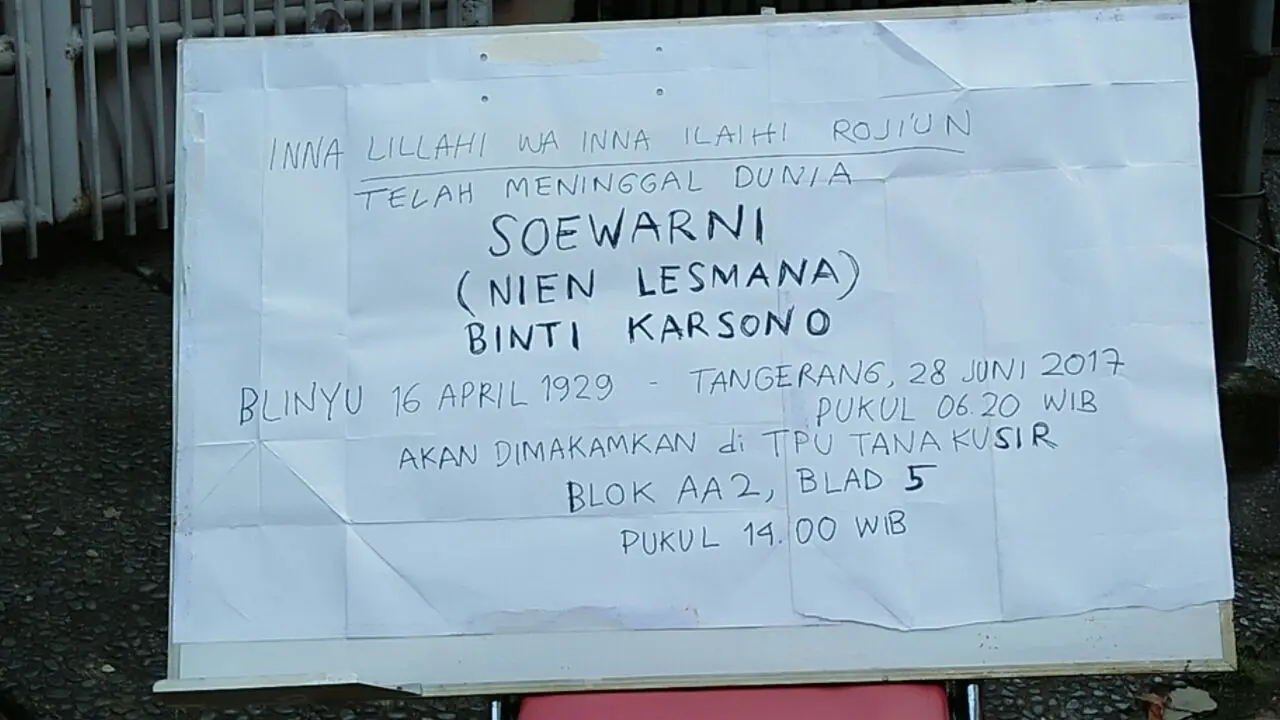 INNA LILLAHI WA INNA ILAIHI ROJI'UN
TELAH MENINGGAL DUNIA
SOEWARNI
(NIEN LESMANA)
BINTI KARSONO
BLINYU 16 APRIL 1929 - TANGERANG, 28 JUNI 2017
PUKUL 06.20 WIB
AKAN DIMAKAMKAN di TPU TANA KUSIR
BLOK AA2, BLAD 5
PUKUL 14.00 WIB